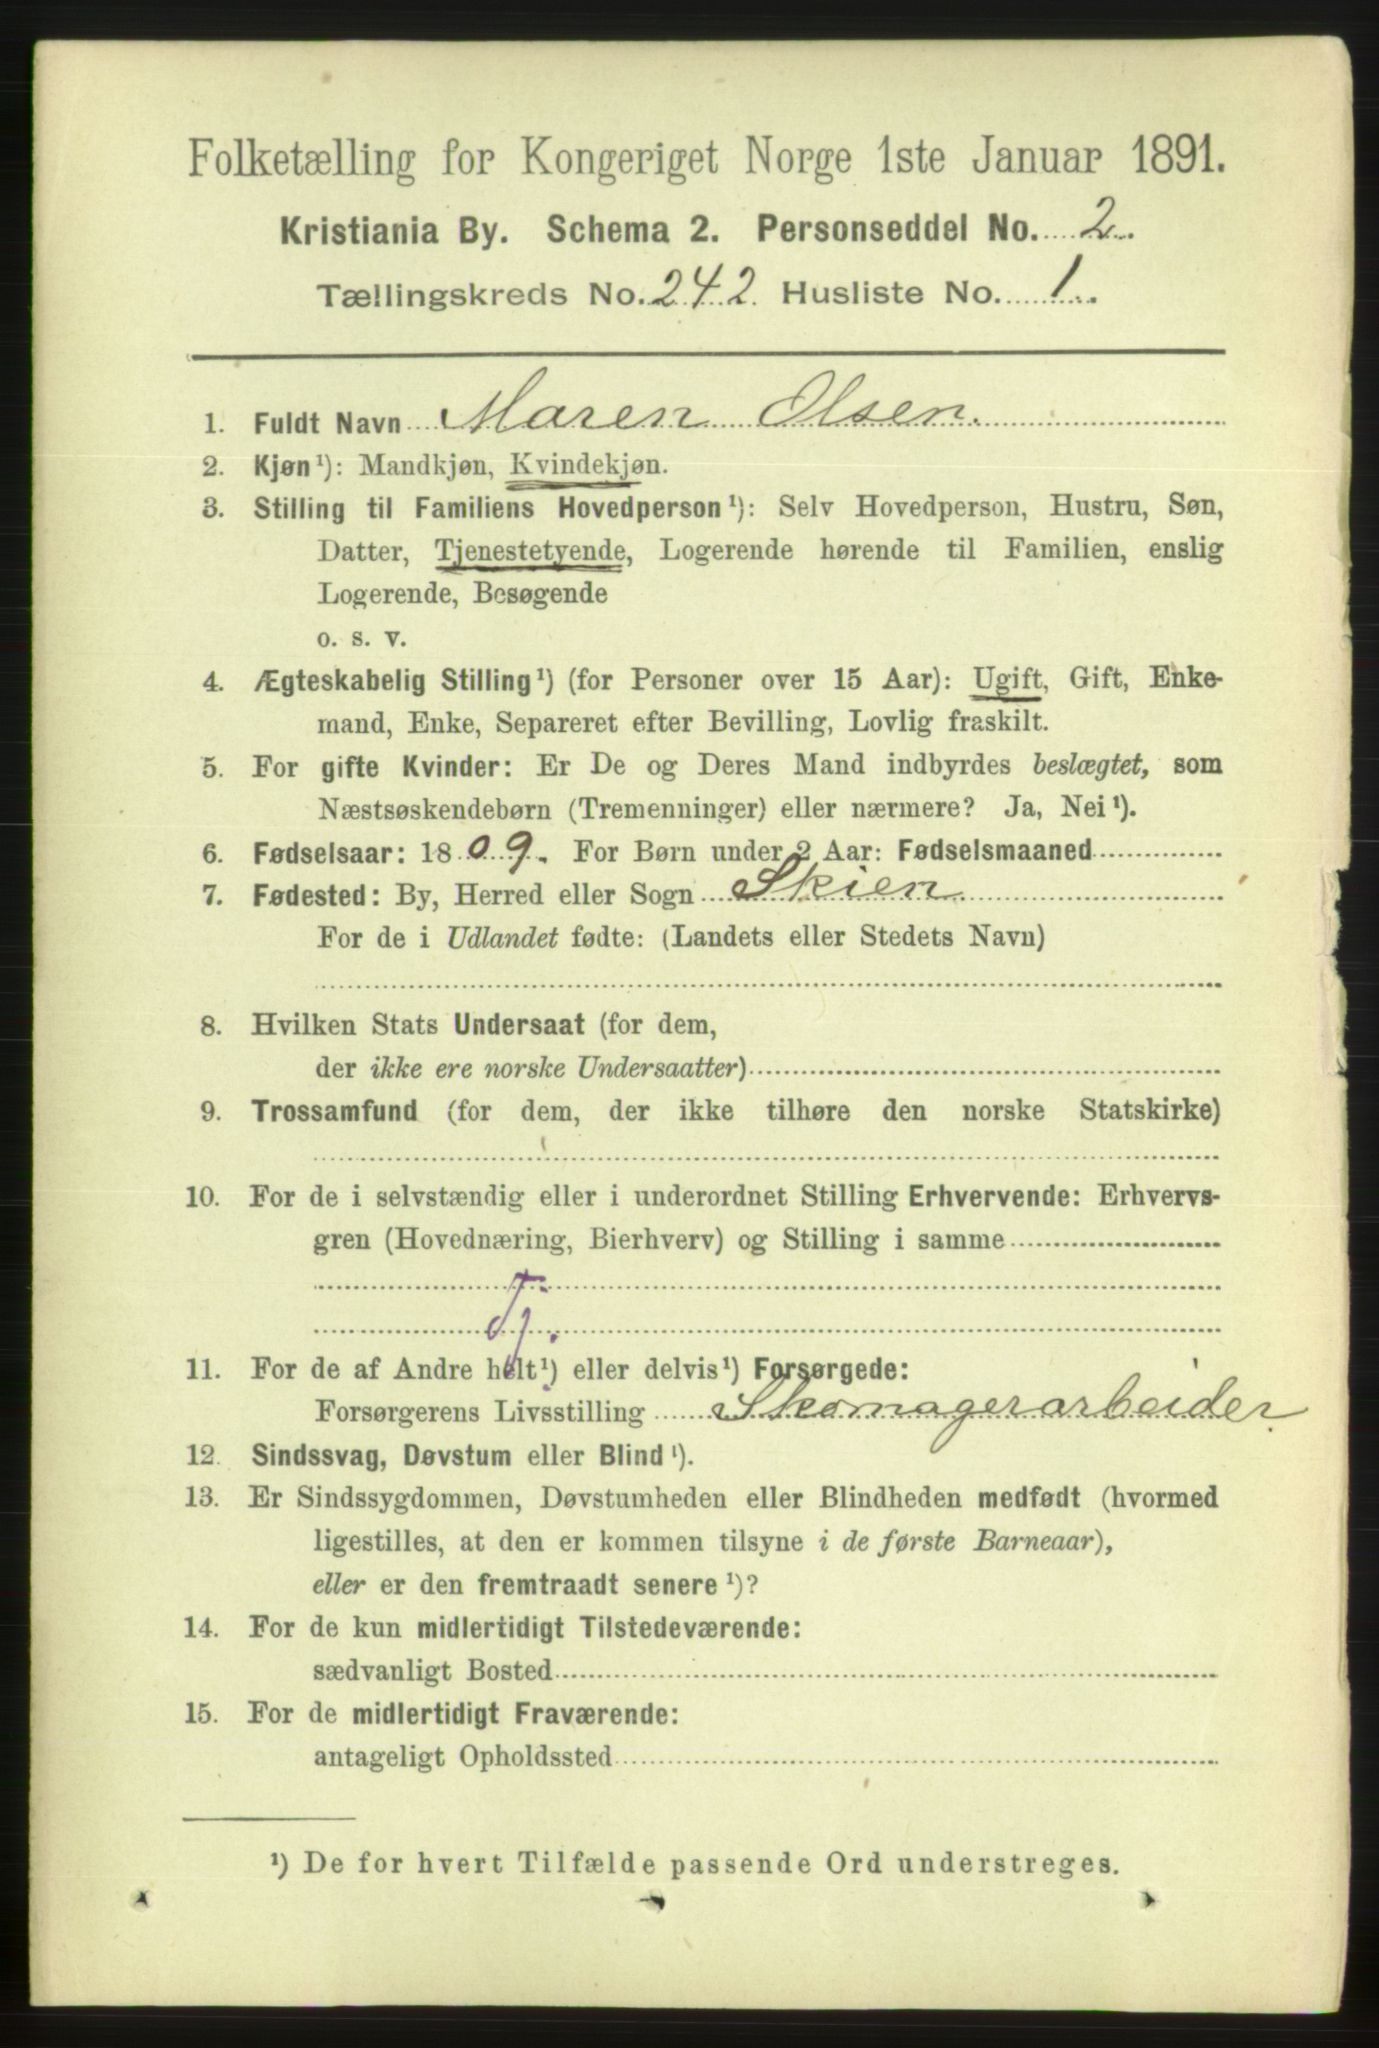 Folketælling for Kongeriget Norge 1ste Januar 1891.
Kristiania By. Schema 2. Personseddel No. 2.
Tællingskreds No. 242. Husliste No. 1.
1. Fuldt Navn Maren Olsen.
2. Kjøn¹): Mandkjøn, Kvindekjøn.
3. Stilling til Familiens Hovedperson¹): Selv Hovedperson, Hustru, Søn,
Datter, Tjenestetyende, Logerende hørende til Familien, enslig
Logerende, Besøgende
o. s. v.
4. Ægteskabelig Stilling¹) (for Personer over 15 Aar): Ugift, Gift, Enke-
mand, Enke, Separeret efter Bevilling, Lovlig fraskilt.
5. For gifte Kvinder: Er De og Deres Mand indbyrdes beslægtet, som
Næstsøskendebørn (Tremenninger) eller nærmere? Ja, Nei¹).
6. Fødselsaar: 1809. For Børn under 2 Aar: Fødselsmaaned
7. Fødested: By, Herred eller Sogn Skien
For de i Udlandet fødte: (Landets eller Stedets Navn)
8. Hvilken Stats Undersaat (for dem,
der ikke ere norske Undersaatter)
9. Trossamfund (for dem, der ikke tilhøre den norske Statskirke)
10. For de i selvstændig eller i underordnet Stilling Erhvervende: Erhvervs-
gren (Hovednæring, Bierhverv) og Stilling i samme
Tj.
11. For de af Andre helt¹) eller delvis¹) Forsørgede:
Forsørgerens Livsstilling Skomagerarbeider.
12. Sindssvag, Døvstum eller Blind¹).
13. Er Sindssygdommen, Døvstumheden eller Blindheden medfødt (hvormed
ligestilles, at den er kommen tilsyne i de første Barneaar),
eller er den fremtraadt senere¹)?
14. For de kun midlertidigt Tilstedeværende:
sædvanligt Bosted
15. For de midlertidigt Fraværende:
antageligt Opholdssted
¹) De for hvert Tilfælde passende Ord understreges.